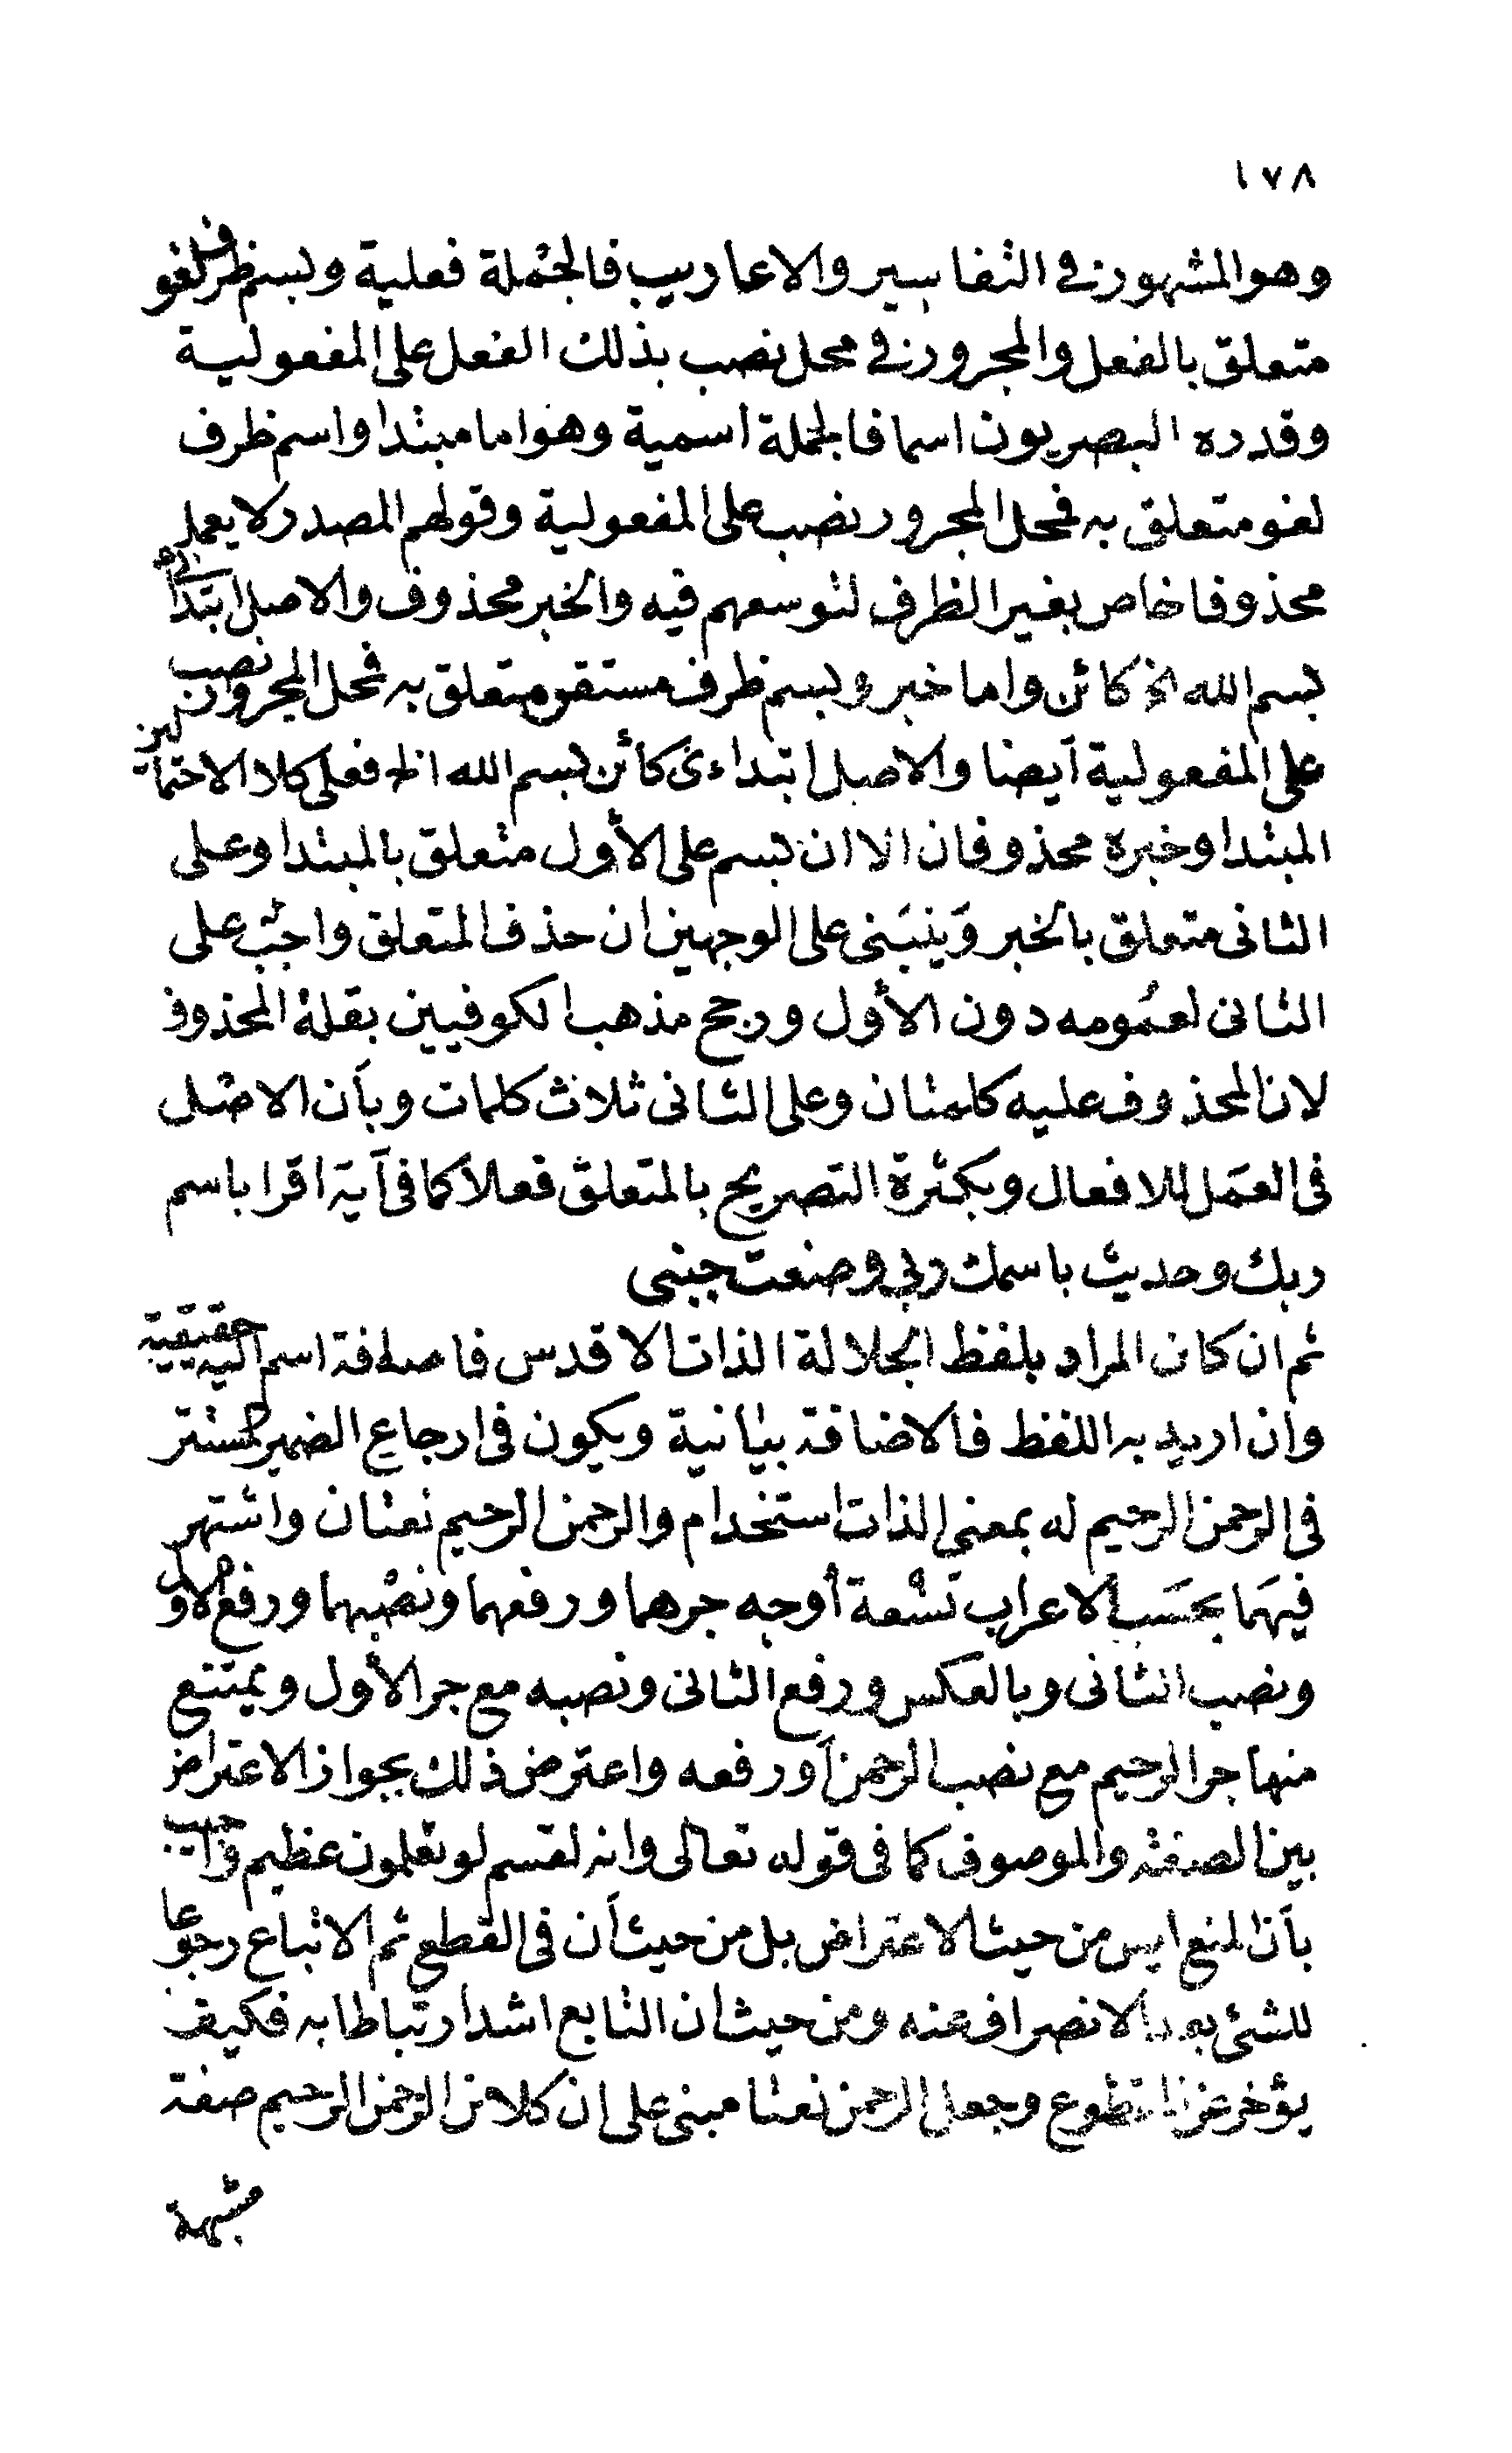 ١٧٨
وهو المشهور في التفاسير والاعاريب فالجملة فعلية وبسم ظرف لغو
متعلق بالفعل والمجرور في محل نصب بذلك الفعل على المفعولية
وقدره البصريون اسما فالجملة اسمية وهو اما مبتدا واسم ظرف
لغو متعلق به فمحل المجرور نصب على المفعولية وقولهم المصدر لا يعمل
محذوفا خاص بغير الظرف لتوسعهم فيه والخبر محذوف والاصل ابتدائي
بسم الله الخ كائن واما خبر وبسم ظرف مستقر متعلق به فمحل المجرور نصب
على المفعولية أيضا والاصل ابتداءى كائن بسم الله الخ فعلى كلا الاحتمالين
المبتدا وخبره محذوفان الا ان بسم على الأول متعلق بالمبتدا وعلى
الثانى متعلق بالخبر وينبنى على الوجهين ان حذف المتعلق واجب على
الثانى لعمومه دون الأول ورجح مذهب الكوفيين بقلة المحذوف
لان المحذوف عليه كلمتان وعلى الثانى ثلاث كلمات وبأن الاصل
فى العمل للافعال وبكثرة التصريح بالمتعلق فعلا كما فى آية اقرا باسم
ربك وحديث باسمك ربى وضعت جنبى
ثم ان كان المراد بلفظ الجلالة الذات الاقدس فاضافة اسم اليه حقيقية
وان اريد به اللفظ فالاضافة بيانية ويكون فى ارجاع الضمير المستتر
فى الرحمن الرحيم له بمعنى الذات استخدام والرحمن الرحيم نعتان واشتهر
فيهما بحسب الاعراب تسعة أوجه جرهما ورفعهما ونصبهما ورفع الاول
ونصب الثانى وبالعكس ورفع الثانى ونصبه مع جر الأول ويمتنع
منها جر الرحيم مع نصب الرحمن أو رفعه واعترض ذلك بجواز الاعتراض
بين الصفة والموصوف كما فى قوله تعالى وانه لقسم لو تعلمون عظيم واجيب
بأن المنع ليس من حيث الاعتراض بل من حيث أن فى القطع ثم الاتباع رجوعا
للشئ بعد الانصراف عنه ومن حيث ان التابع اشد ارتباطا به فكيف
يؤخر عن المقطوع وجعل الرحمن نعتا مبنى على ان كلا من الرحمن الرحيم صفة
مشبهة